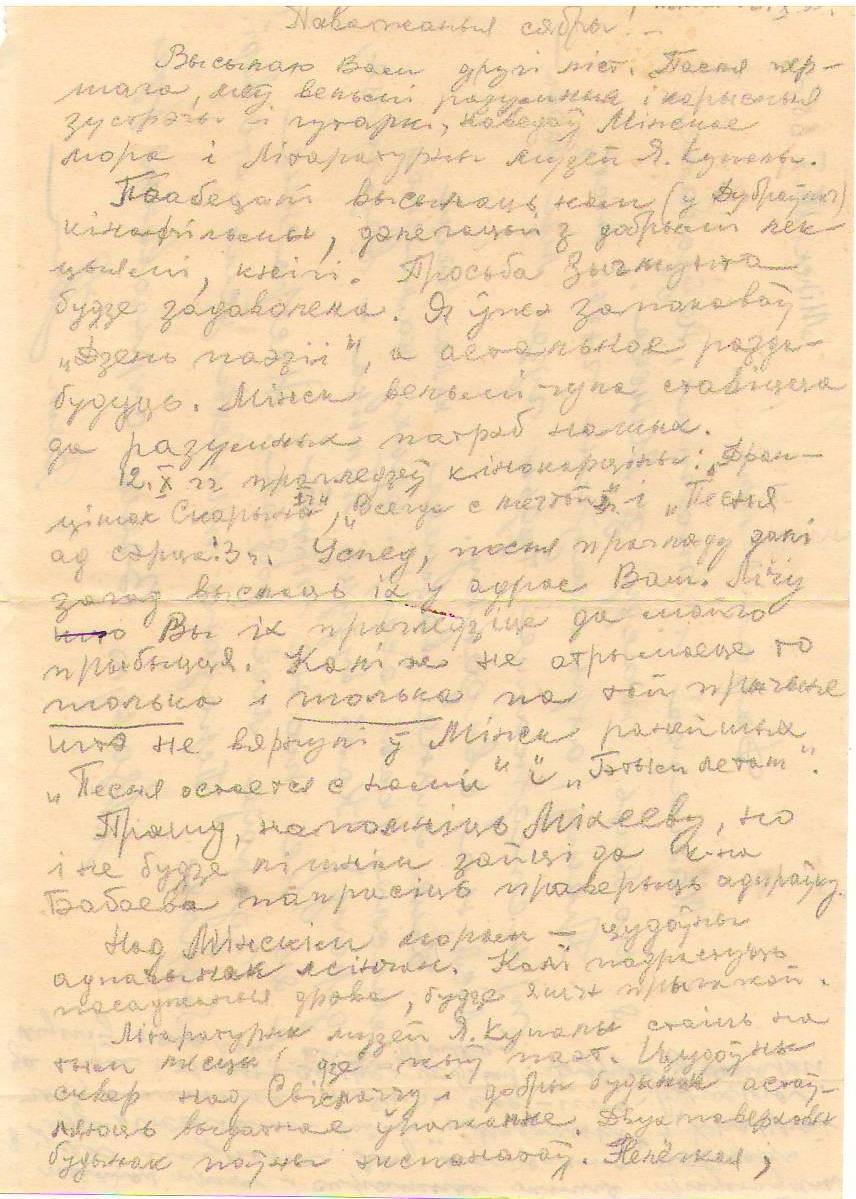 Паважаныя сябры! –
Высылаю Вам другі ліст. Пасля пер-
шага, меў вельмі разумныя і карысныя
зустрэчы і гутаркі, наведаў Мінскае
мора і Літаратурны музей Я. Купалы.
Паабецалі высылаць нам (у Дубраўках)
кінафільмы, дэлегацыі з добрымі лек-
цыямі, кнігі. Просьба Зыгмунта
будзе задаволена. Я ўжо запакаваў
„Дзень паэзіі", а астальное разда-
будуць. Мінск вельмі чула ставіцца
да разумных патрэб нашых.
12.X праглядзеў кінакарціны: „Фран-
цішак Скарына", „Всегда с мечтой" і „Песня
ад сэрца". Услед, пасля прагляду далі
загад выслаць іх у адрас Ваш. Лічу
што Вы іх праглядзіце да майго
прыбыцця. Калі ж не атрымаеце то
толькі і толькі па той прычыне
што не вярнулі ў Мінск ранейшых
„Песня остается с нами" и „Этим летам".
Прашу, напомніць Міхееву, но
і не будзе лішнім зайці да к-на
Бабаева папрасіць праверыць адпраўку.
Над Мінскім морам – цудоўны
адпачынак мінчан. Калі падрастуць
пасаджаныя дрэва, будзе яшчэ прыгажэй.
Літаратурны музей Я. Купалы стаіць на
тым месцы, дзе жыў паэт. Цудоўны
сквер над Свіслаччу і добры будынак астаў-
ляюць выдатнае ўражанне. Двухпавярховы
будынак поўны экспанатаў. Нялёгкая,